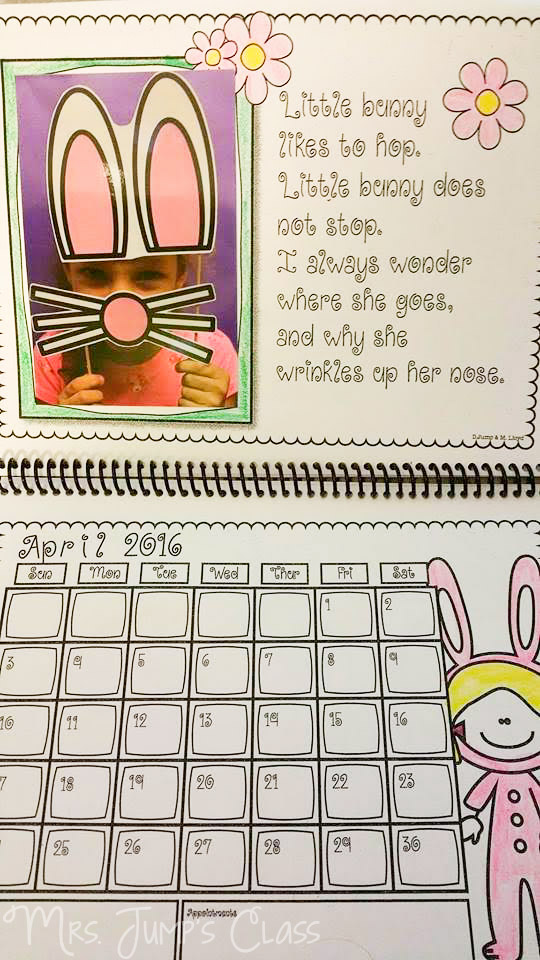 Little bunny
likes to hop.
Little bunny does
not stop.
I always wonder
where she goes,
and why she
wrinkles up her nose.
D.Jump & M. Lloyd
April 2016
Sun Mon Tue Wed Thur Fri Sat
1 2
3 4 5 6 7 8 9
10 11 12 13 14 15 16
7 18 19 20 21 22 23
25 26 27 28 29 30
Appointments
Mrs. Jump's Class